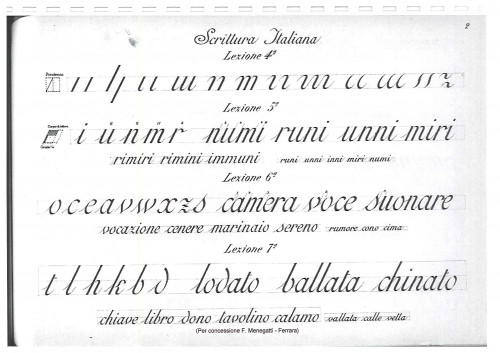 2
Scrittura Italiana
Lezione 4ª
Pendenza
Lezione 5ª
i ü ń m̈ ṙ ñümï runi unni miri
rimiri rimini immuni runi unni inni miri numi
Lezione 6ª
o c e a v w x z s camera voce suonare
vocazione cenere marinaio sereno rumore cono cima
Lezione 7ª
t l h k b d lodato ballata chinato
chiave libro dono tavolino calamo vallata calle vella
(Per concessione F. Menegatti - Ferrara)